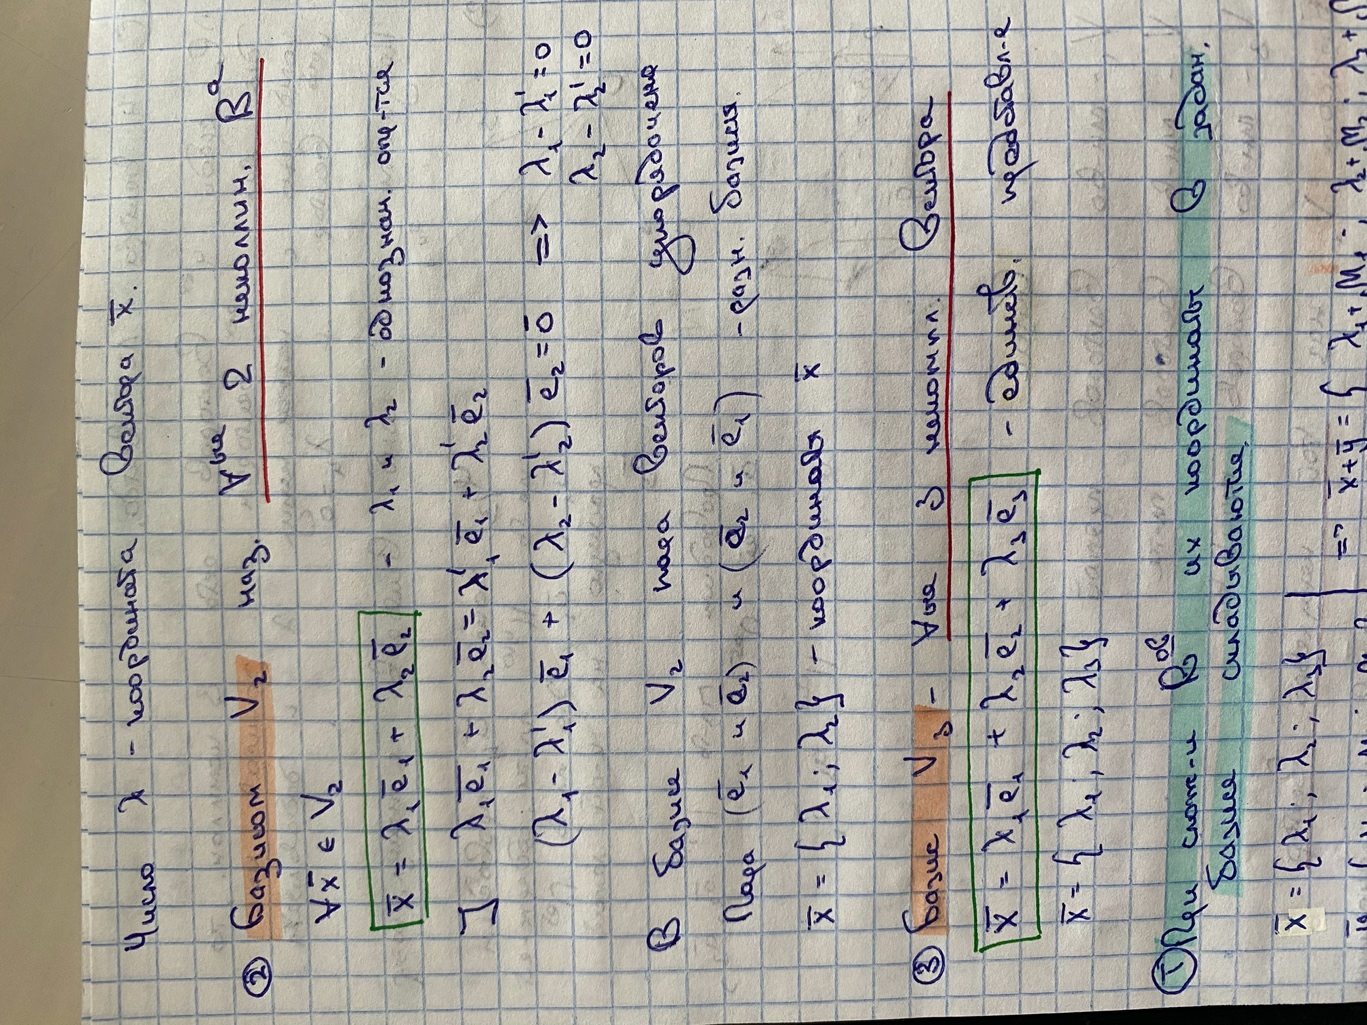 Число λ - координата вектора x̄.
② Базисом V₂ наз. ∀ые 2 неколлин. Вᵃ
∀x̄ ∈ V₂
x̄ = λ₁ē₁ + λ₂ē₂ - λ₁ и λ₂ - однознач. опр-тся
] λ₁ē₁ + λ₂ē₂ = λ₁'ē₁ + λ₂'ē₂
(λ₁ - λ₁')ē₁ + (λ₂ - λ₂')ē₂ = ō => λ₁ - λ₁' = 0
λ₂ - λ₂' = 0
В базисе V₂ пара векторов упорядочена
Пара (ē₁ и ē₂) и (ē₂ и ē₁) - разн. базисы.
x̄ = {λ₁; λ₂} - координаты x̄
③ Базис V₃ - ∀ые 3 некомпл. вектора
x̄ = λ₁ē₁ + λ₂ē₂ + λ₃ē₃ - единств. представл-е
x̄ = {λ₁; λ₂; λ₃}
① При слож-и Вᵒᵛ их координаты в задан.
базисе складываются.
x̄ = {λ₁; λ₂; λ₃}
=> x̄+ȳ = { λ₁+M₁; λ₂+M₂; λ₃+